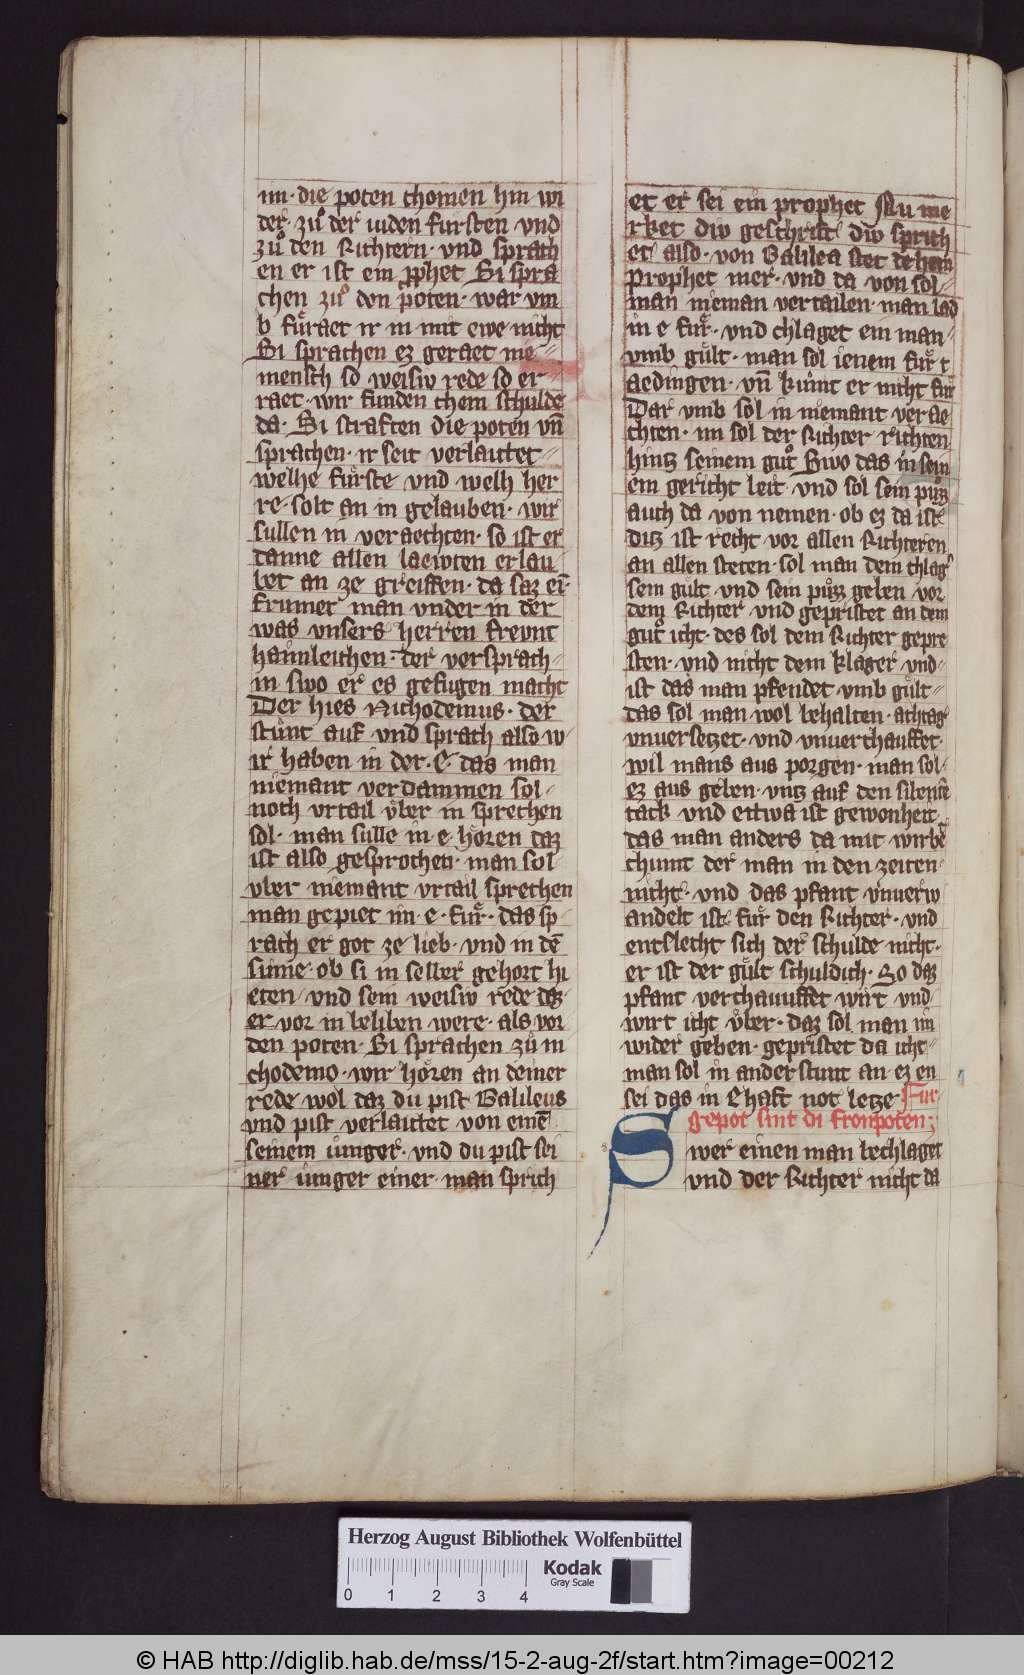 im· die poten chomen hin wi
der· zuͦ der iuden fursten vnd
zuͦ den Richtern· vnd sprach
en er ist ein ꝓphet Si spra
chen zuͦ den poten· war vm
b fuͤraet ir in mit ewe nicht
Si sprachen ez geraet nie
mensch so weisiv rede so er
raet· wir funden chein schulde
da· Si straften die poten vn̄
sprachen· ir seit verlaittet
welhe fuͤrste vnd welh her
re· solt an in gelauben· wir
sullen in veraechten· so ist er
danne allen laewten erlau
bet an ze greiffen· da saz ein
frumer man vnder in der
was vnsers herren frevnt
haimleichen· der versprach
in swo er es gefugen macht
Der hies Nichodemus· der
stuͤnt auf vnd sprach also w
ir haben in der· E· das man
niemant verdammen sol
noch vrtail vber in sprechen
sol· man sulle in e· hoͤren daz
ist also gesprochen· man sol
vber niemant vrtail sprechen
man gepiet im· e· fuͤr· das sp
rach er got ze lieb· vnd in dē
sinne· ob si in selber gehort hi
eten· vnd sein weisiv rede daz
er vor in beliben were· als vor
den poten· Si sprachen zuͦ ni
chodemo· wir hoͤren an deiner
rede wol daz du pist Galileus
vnd pist verlaittet von einē
seinem iunger· vnd du pist sei
ner iunger einer· man sprich
et er sei ein prophet Nu me
rket div geschrift div sprich
et also· von Galilea stet dehein
prophet mer· vnd da von sol
man nieman vertailen· man lad
in e fuͤr· vnd chlaget ein man
vmb guͤlt· man sol ienem fuͤr t
aedingen· vn̄ kumt er nicht fur
Dar vmb sol in niemant verae
chten· im sol der Richter richten
hintz seinem guͦt Swo das in sein
em gericht leit· vnd sol sein puͦzz
auch da von nemen· ob ez da ist
ditz ist recht vor allen Richteren
an allen steten· sol man dem chlag
sein guͤlt· vnd sein puͦzz geben vor
dem Richter vnd gepristet an dem
guͦt icht· des sol dem Richter gepre
sten· vnd nicht dem klager vnd
ist das man pfendet vmb guͤlt
das sol man wol behalten· achtag
vnversetzet· vnd vnverchauffet·
wil mans aus porgen· man sol
ez aus geben· vntz auf den sibente
tack vnd ettwa ist gewonheit
das man anders da mit wirbet
chumt der man in den zeiten
nicht· vnd das pfant vnverw
andelt ist fuͤr den Richter· vnd
entslecht sich der schulde nicht·
er ist der guͤlt schuldich· So daz
pfant verchauuffet wirt vnd
wirt icht uͤber· daz sol man im
wider geben· gepristet da icht
man sol in ander stunt an· ez en
sei das in Ehaft not letze· Fur
gepot sint di fronpoten;
Swer einen man bechlaget
vnd der Richter nicht da
Herzog August Bibliothek Wolfenbüttel
0 1 2 3 4
Kodak
Gray Scale
© HAB http://diglib.hab.de/mss/15-2-aug-2f/start.htm?image=00212